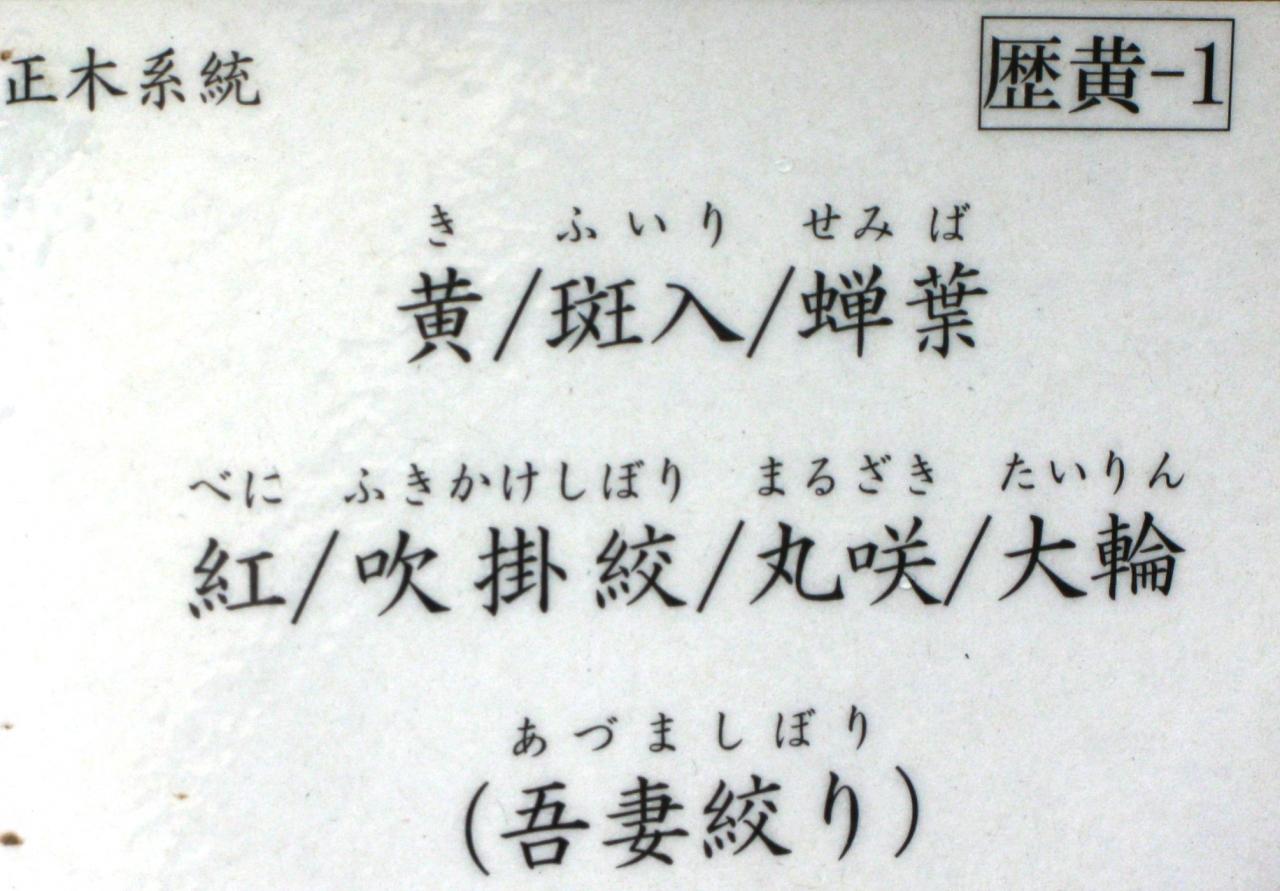 正木系統 歴黄-1
き ふいり せみば
黄/斑入/蝉葉
べに ふきかけしぼり まるざき たいりん
紅/吹掛絞/丸咲/大輪
あづましぼり
(吾妻絞り)